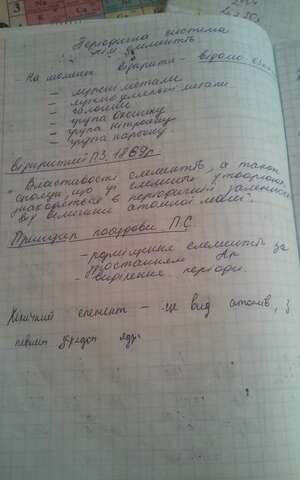 Періодична система
хім. елементів
На момент відкриття – відомо
– лужні метали
– лужноземельні метали
– галогени
– група оксигену
– група нітрогену
– група карбону
відкриттєй ПЗ, 1869р
"Властивості елементів, а також
сполук, що ці елементи утворюють,
знаходяться в періодичній залежності
від величини атомної маси".
Принцип побудови П.С.
– розміщення елементів за
зростанням Ar
– виділення періоди.
Хімічний елемент – це вид атомів, з
певним зарядом ядра